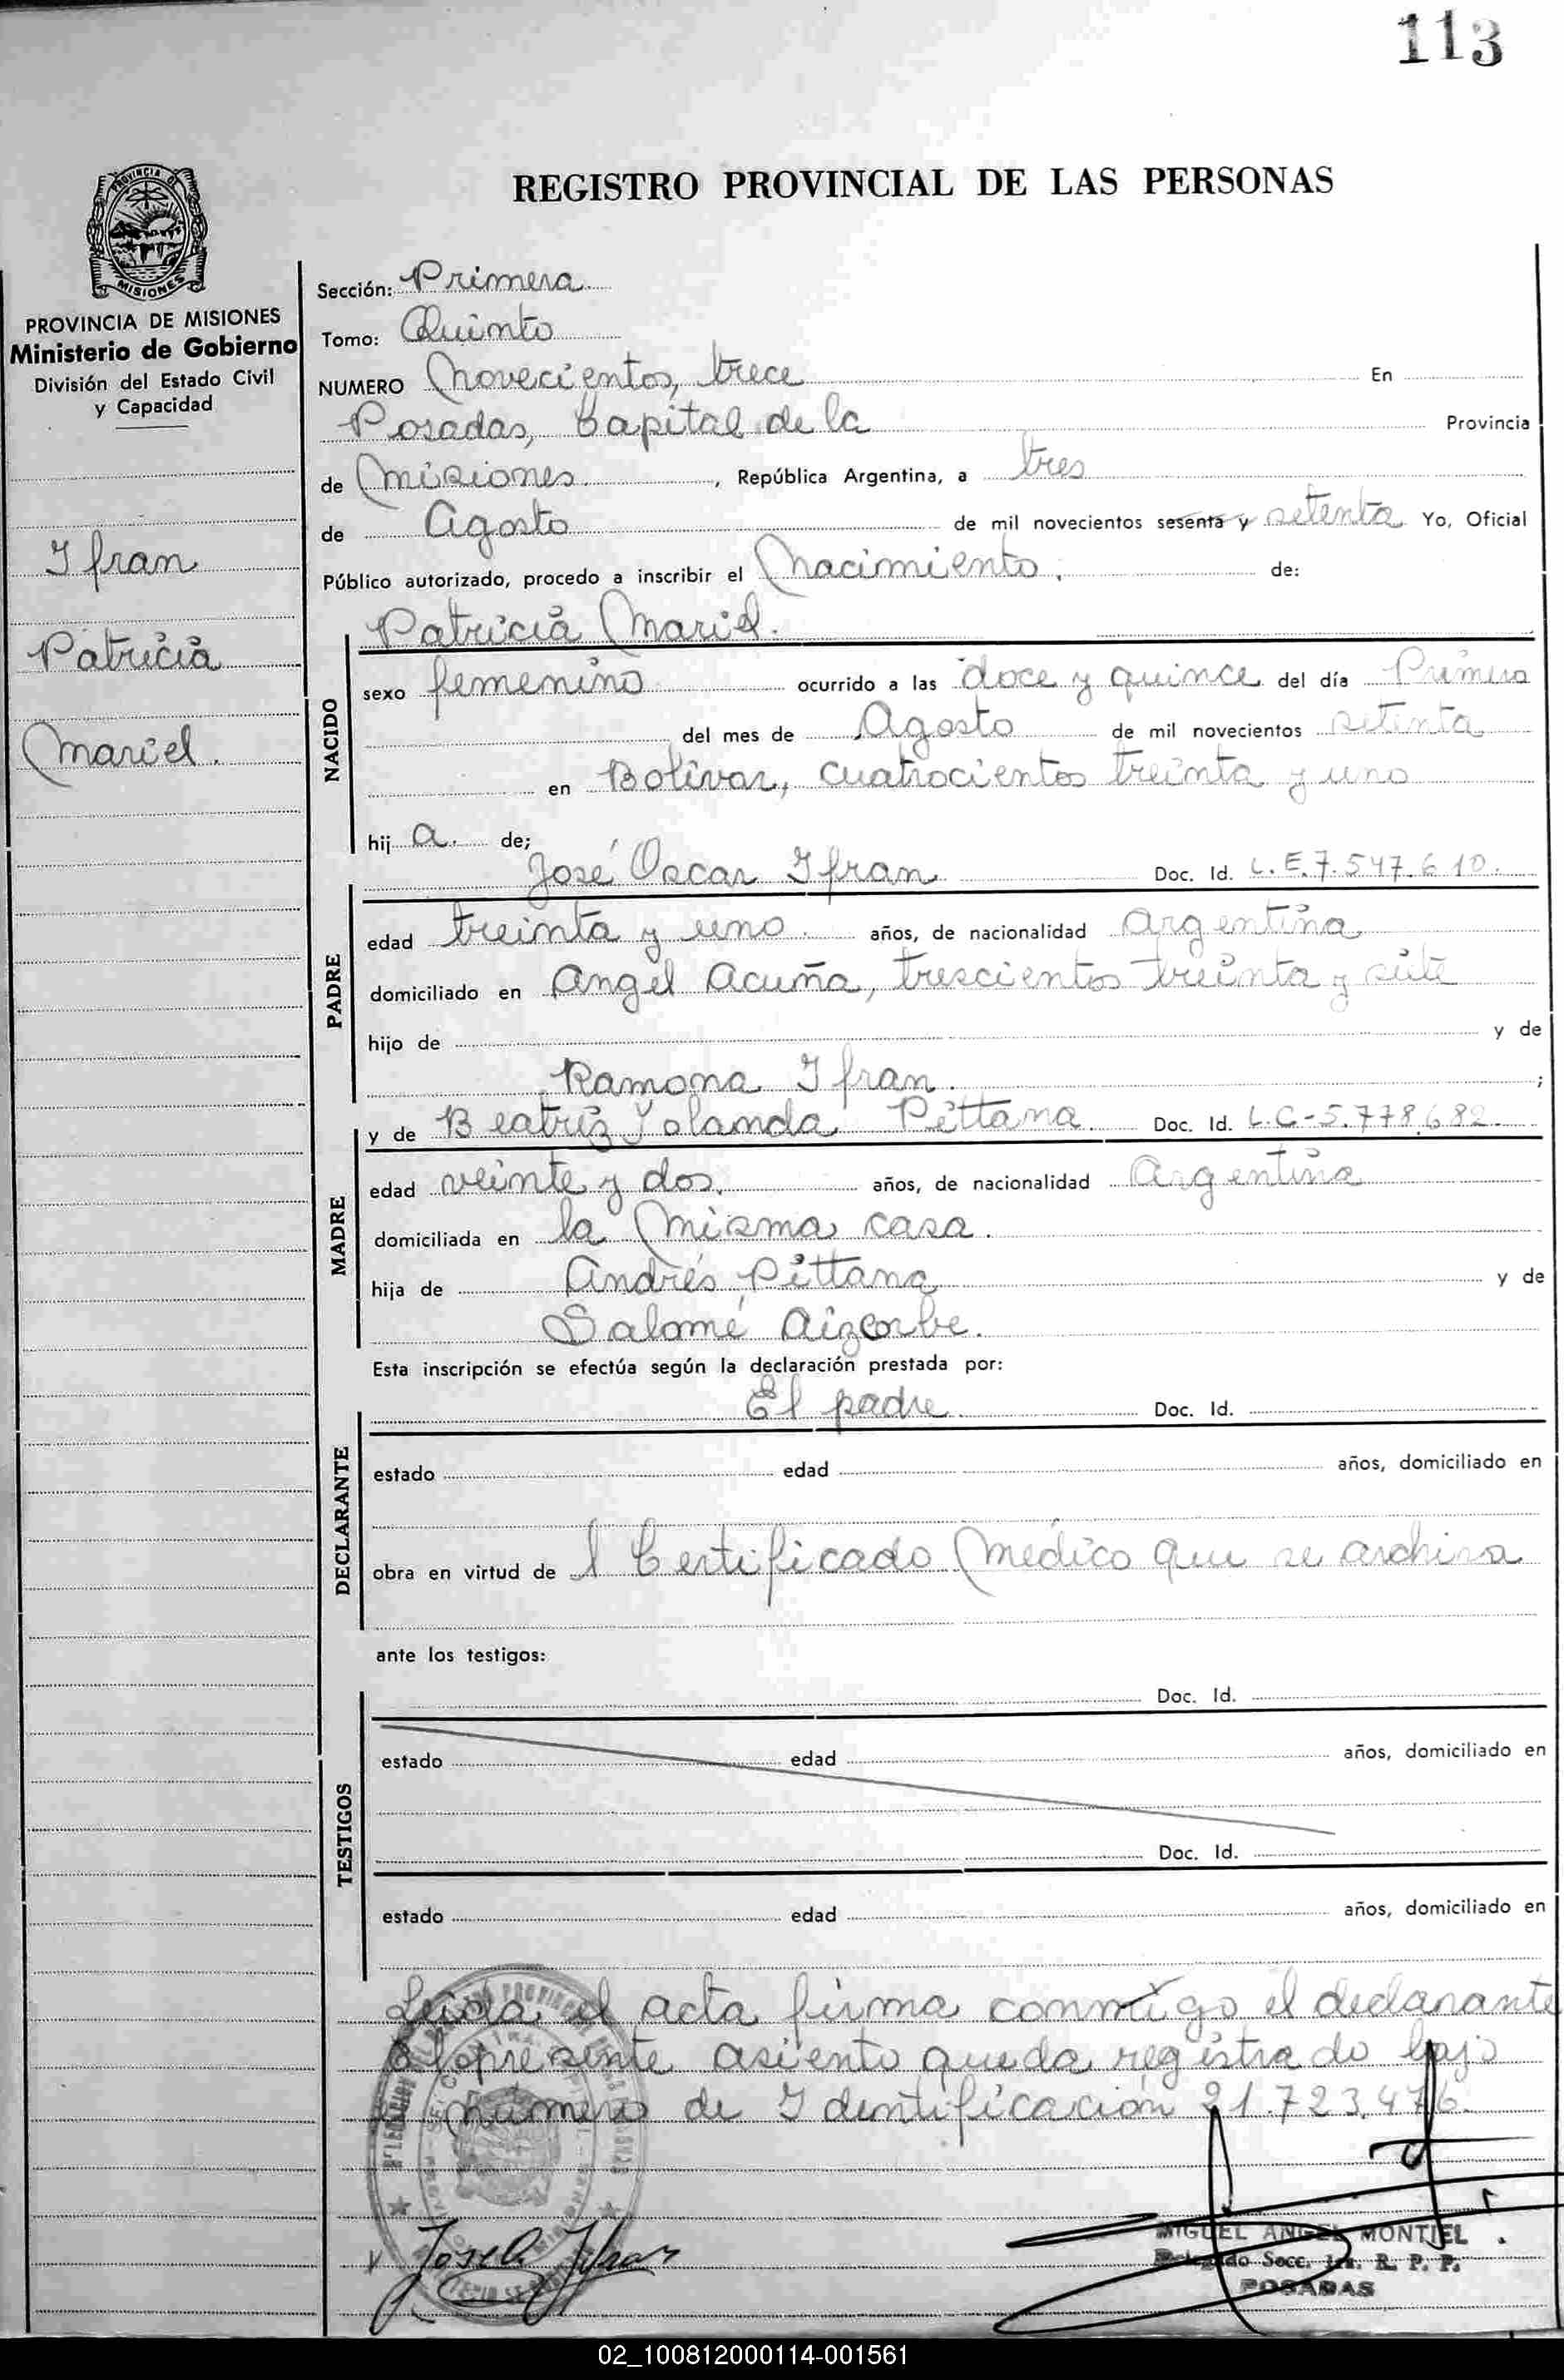 113
PROVINCIA DE MISIONES
REGISTRO PROVINCIAL DE LAS PERSONAS
PROVINCIA DE MISIONES
Ministerio de Gobierno
División del Estado Civil
y Capacidad
Ifran
Patricia
Mariel.
Sección: Primera
Tomo: Quinto
NUMERO Novecientos, trece En
Posadas, Capital de la Provincia
de Misiones, República Argentina, a tres
de Agosto de mil novecientos sesenta y setenta Yo, Oficial
Público autorizado, procedo a inscribir el Nacimiento. de:
Patricia Mariel.
NACIDO
sexo femenino ocurrido a las doce y quince del día Primero
del mes de Agosto de mil novecientos setenta
en Bolívar, cuatrocientos treinta y uno
hij a. de;
José Oscar Ifran Doc. Id. L.E.7.547.610.
PADRE
edad treinta y uno. años, de nacionalidad Argentina
domiciliado en Angel Acuña, trescientos treinta y siete
hijo de y de
Ramona Ifran. ;
y de Beatriz Yolanda Pittana. Doc. Id. L.C-5.778.682.
MADRE
edad veinte y dos, años, de nacionalidad Argentina
domiciliada en la Misma casa.
hija de Andrés Pittana y de
Salomé Aizcorbe.
Esta inscripción se efectúa según la declaración prestada por:
El padre. Doc. Id.
DECLARANTE
estado edad años, domiciliado en
obra en virtud de l Certificado Médico que se archiva
ante los testigos:
Doc. Id.
TESTIGOS
estado edad años, domiciliado en
Doc. Id.
estado edad años, domiciliado en
Leida el acta firma conmigo el declarante
El presente asiento queda registrado bajo
número de Identificación 21.723.476.
MIGUEL ANGEL MONTIEL
Delegado Secc. 1ra. R. P. P.
POSADAS
02_100812000114-001561